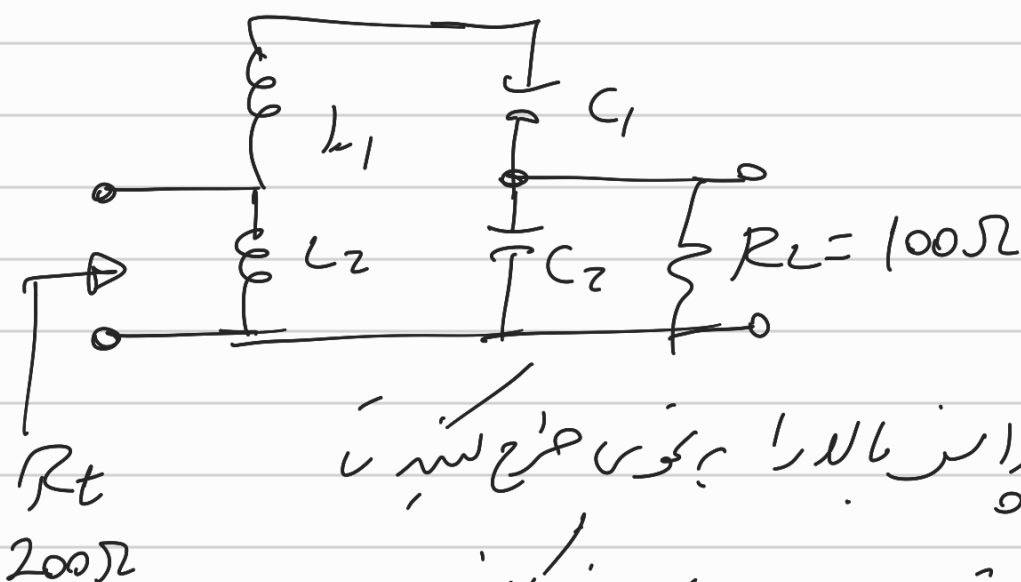 L1
C1
L2
C2
RL = 100Ω
Rt
200Ω
بالا را بگونه‌ای طرح کنید تا